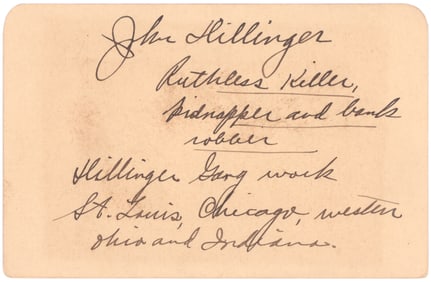 John Dillinger
Ruthless Killer,
kidnapper and bank
robber
Dillinger Gang work
St. Louis, Chicago, western
Ohio and Indiana.